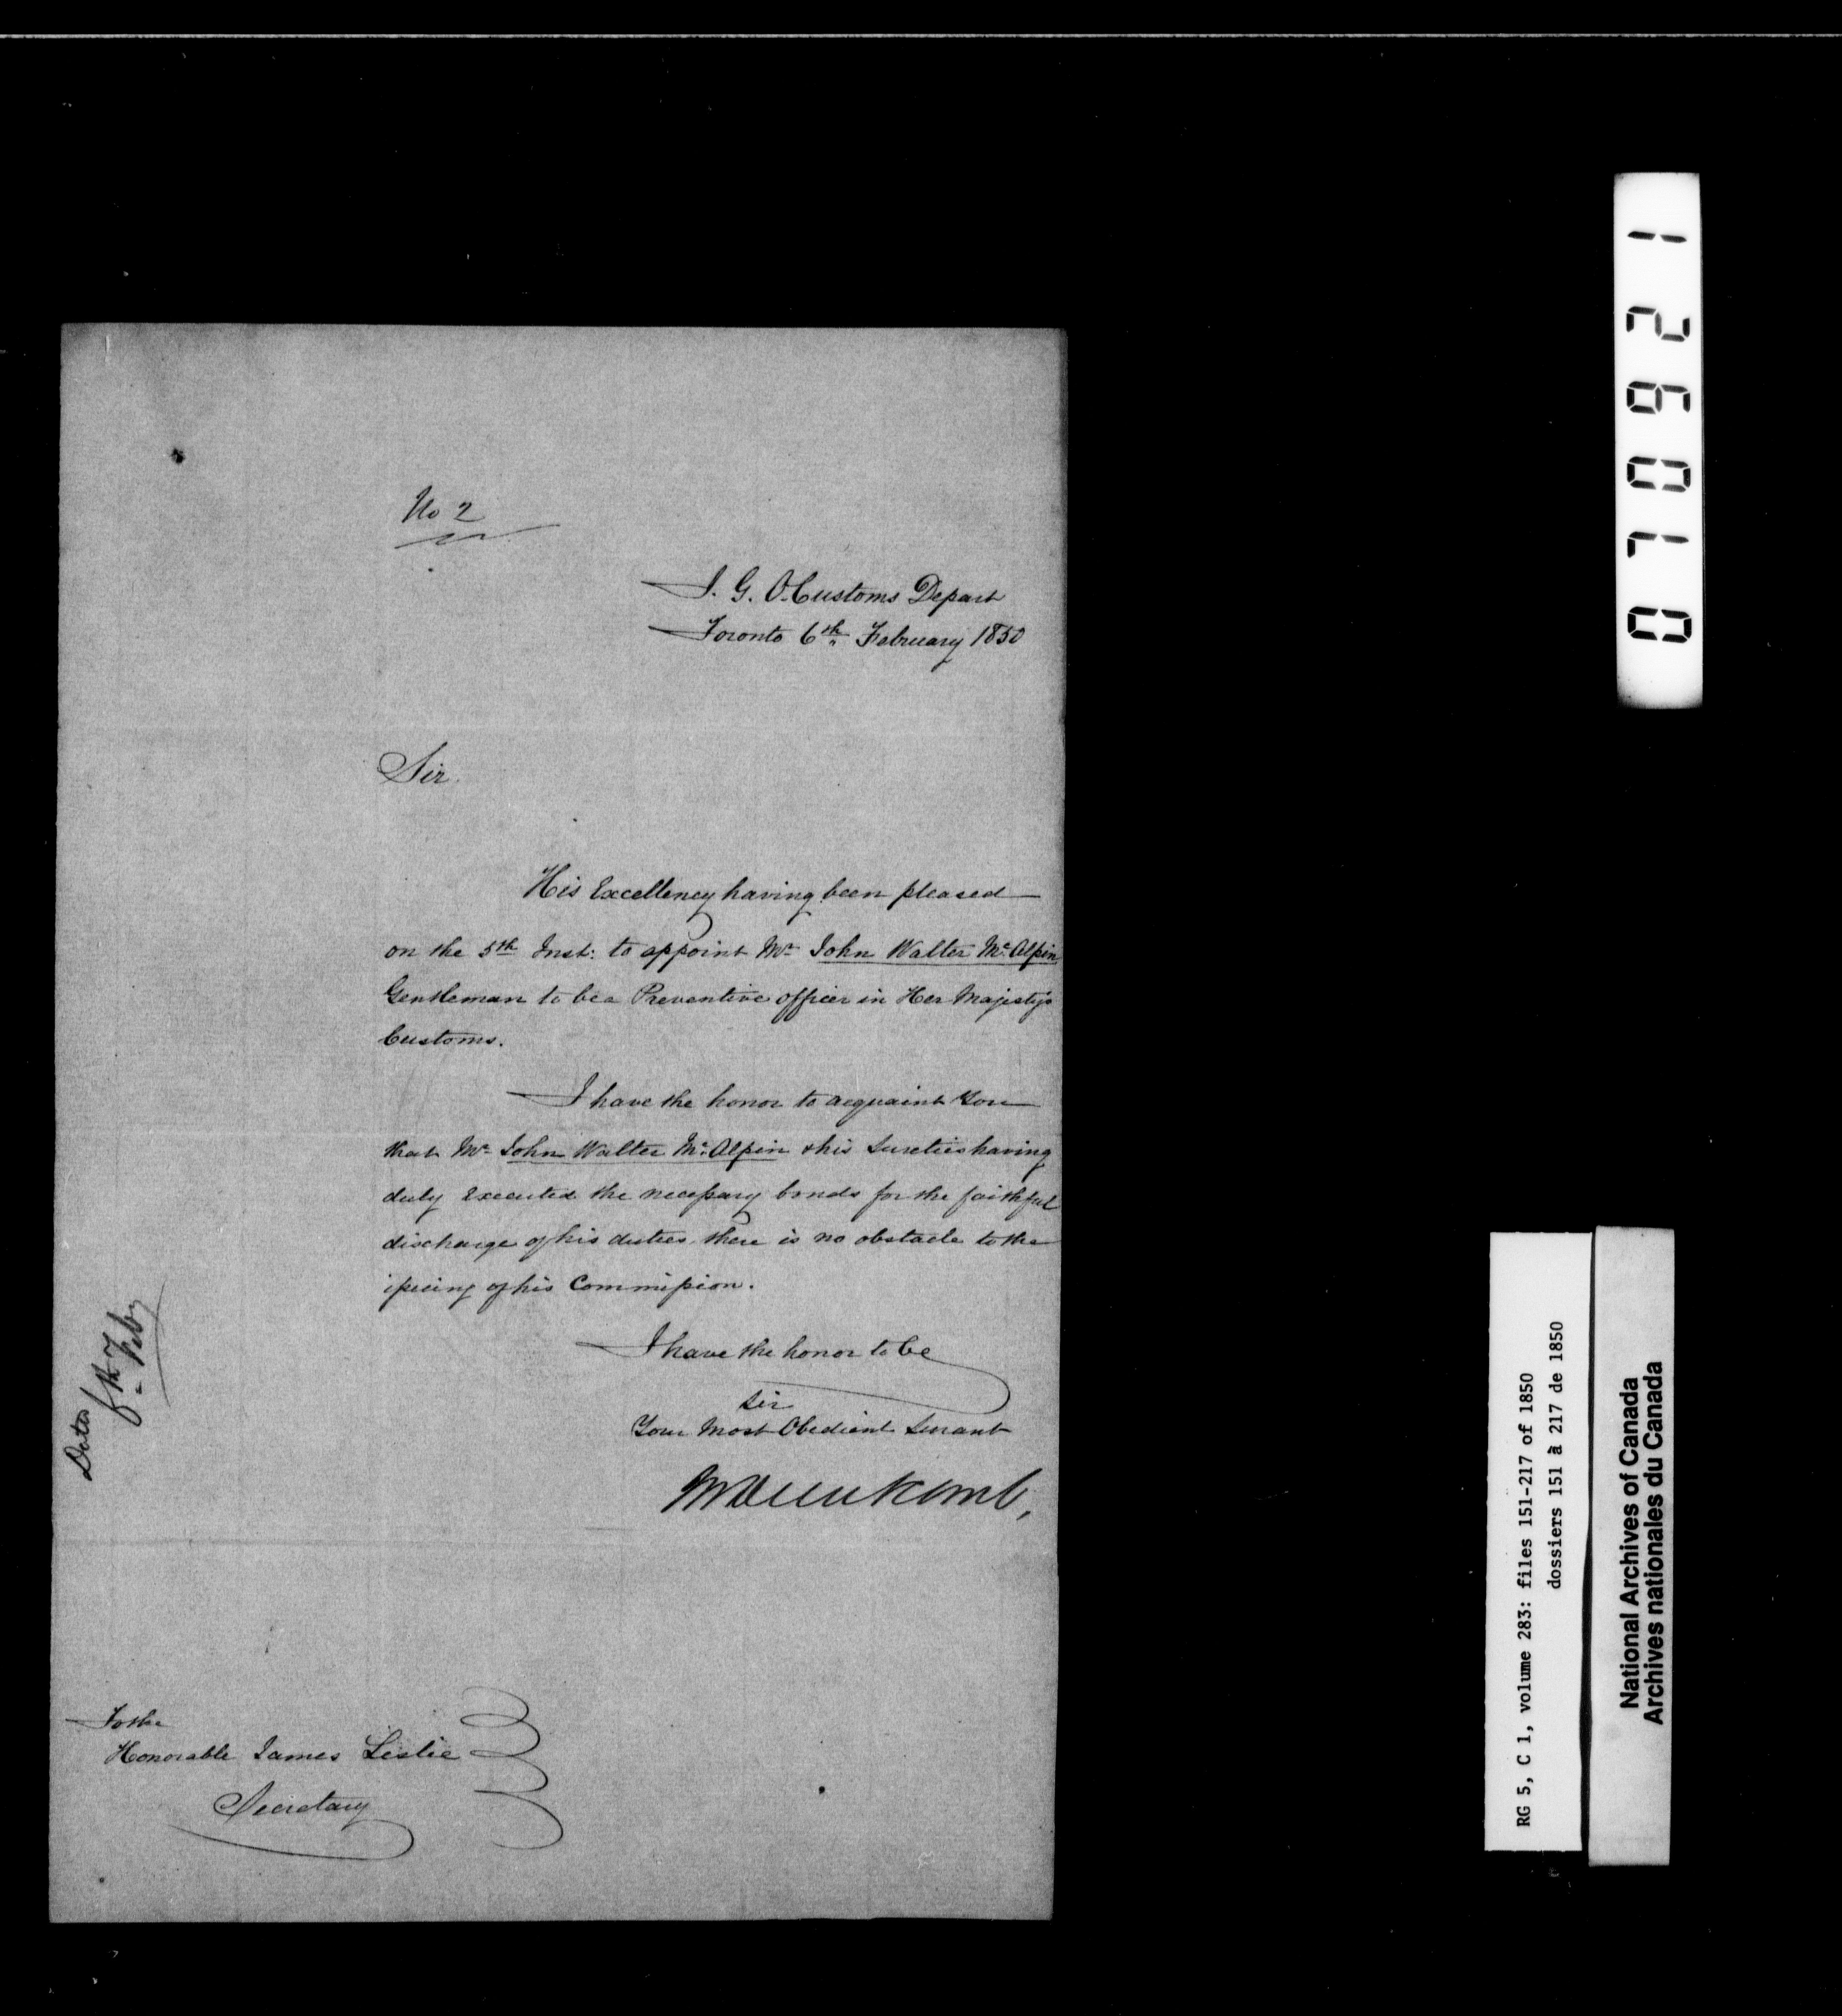 No 2
I. G. O. Customs Depart
Toronto 6th February 1850
Sir
His Excellency having been pleased
on the 5th Inst: to appoint Mr John Walter McAlpin
Gentleman to be a Preventive officer in Her Majesty's
Customs.
I have the honor to acquaint You
that Mr John Walter McAlpin & his Sureties having
duly executed the necessary bonds for the faithful
discharge of his duties there is no obstacle to the
issuing of his Commission.
I have the honor to be
Sir
Your Most Obedient Servant
To the
Honorable James Leslie
Secretary
Dated
5th Feby
012607 1
RG 5, C 1, volume 283: files 151-217 of 1850
dossiers 151 à 217 de 1850
National Archives of Canada
Archives nationales du Canada